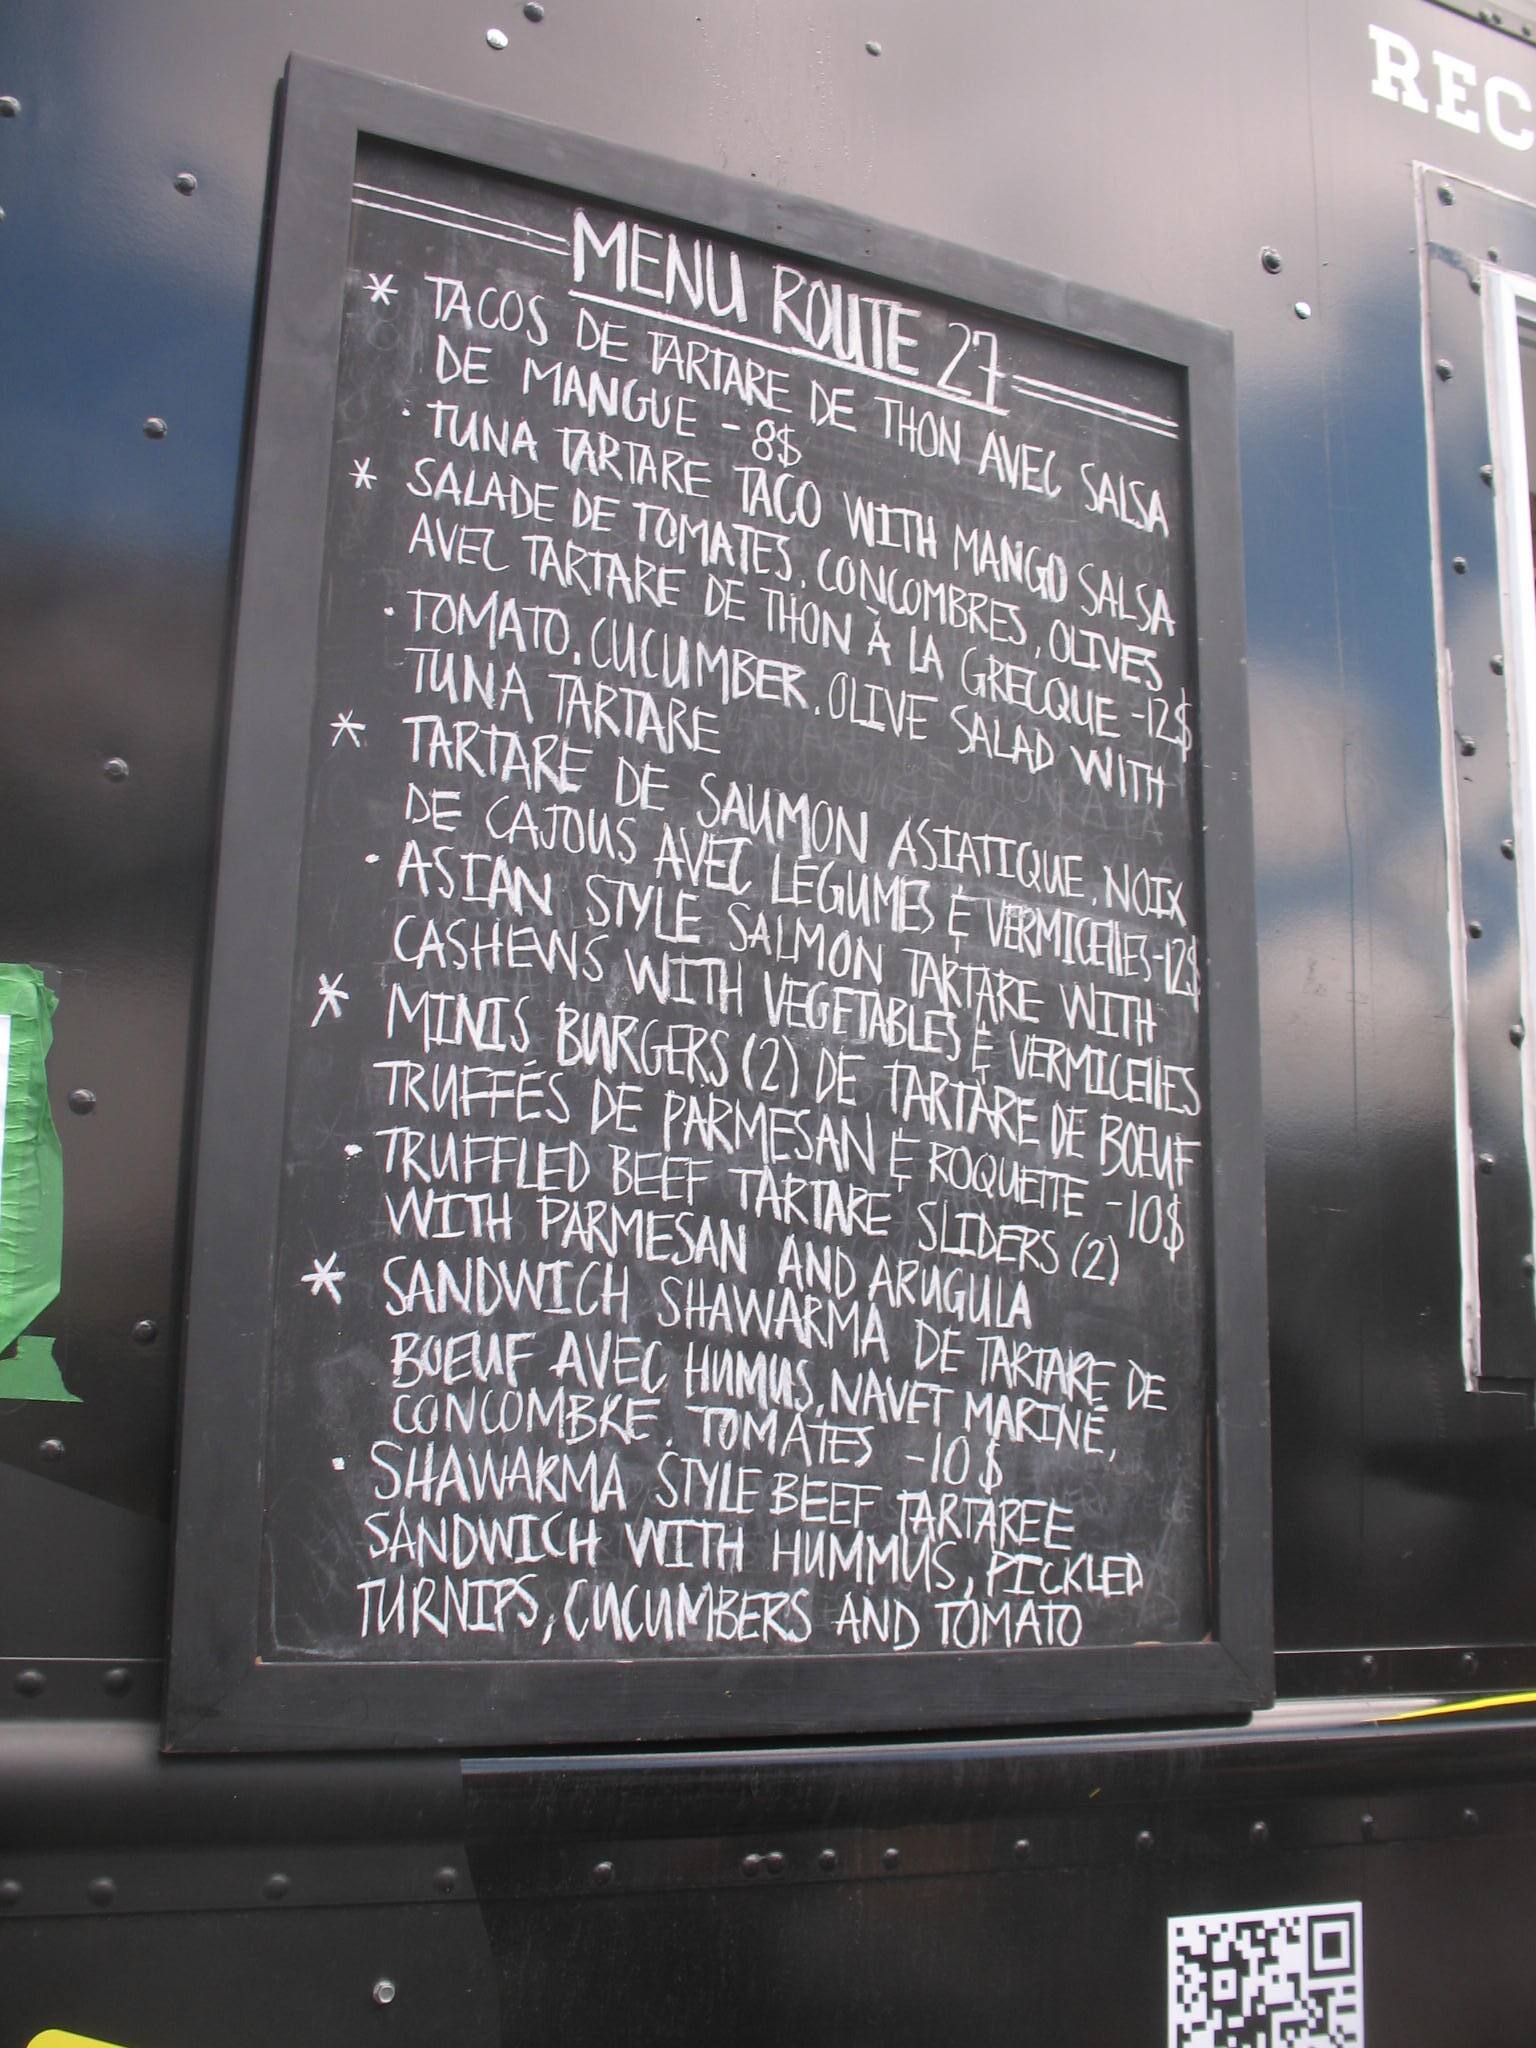 REC
MENU ROUTE 27
* TACOS DE TARTARE DE THON AVEC SALSA
DE MANGUE - 8$
· TUNA TARTARE TACO WITH MANGO SALSA
* SALADE DE TOMATES, CONCOMBRES, OLIVES
AVEC TARTARE DE THON À LA GRECQUE -12$
· TOMATO, CUCUMBER, OLIVE SALAD WITH
TUNA TARTARE
* TARTARE DE SAUMON ASIATIQUE, NOIX
DE CAJOUS AVEC LÉGUMES & VERMICELLES -12$
· ASIAN STYLE SALMON TARTARE WITH
CASHEWS WITH VEGETABLES & VERMICELLES
* MINIS BURGERS (2) DE TARTARE DE BOEUF
TRUFFÉS DE PARMESAN & ROQUETTE -10$
· TRUFFLED BEEF TARTARE SLIDERS (2)
WITH PARMESAN AND ARUGULA
* SANDWICH SHAWARMA DE TARTARE DE
BOEUF AVEC HUMUS, NAVET MARINÉ,
CONCOMBRE, TOMATES -10$
· SHAWARMA STYLE BEEF TARTAREE
SANDWICH WITH HUMMUS, PICKLED
TURNIPS, CUCUMBERS AND TOMATO